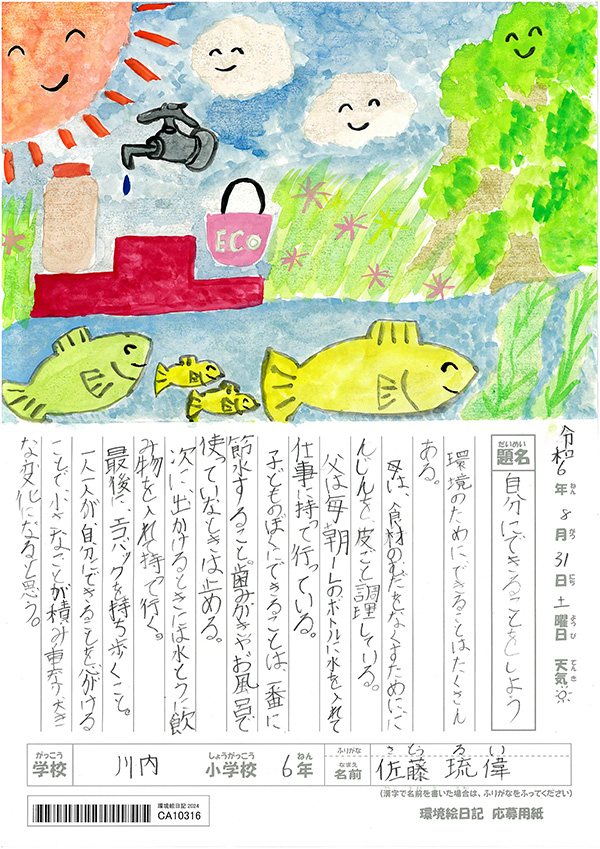 ECO
令和6年8月31日土曜日 天気
ねん がつ にち ようび てんき
だいめい
題名 自分にできることをしよう
環境のためにできることはたくさん
ある。
母は、食材のむだをなくすためにに
んじんを皮ごと調理している。
父は毎朝1Lのボトルに水を入れて
仕事に持って行っている。
子どものぼくにできることは、一番に
節水すること。歯みがきやお風呂で
使っていないときは止める。
次に、出かけるときには水とうに飲
み物を入れて持って行く。
最後に、エコバッグを持ち歩くこと。
一人一人が、自分にできることを心がける
ことで、小さなことが積み重なり大き
な変化になると思う。
がっこう しょうがっこう ねん
学校 川内 小学校 6年
ふりがな さとう るい
なまえ
名前 佐藤 琉偉
(漢字で名前を書いた場合は、ふりがなをふってください)
環境絵日記 2024
CA10316
環境絵日記 応募用紙